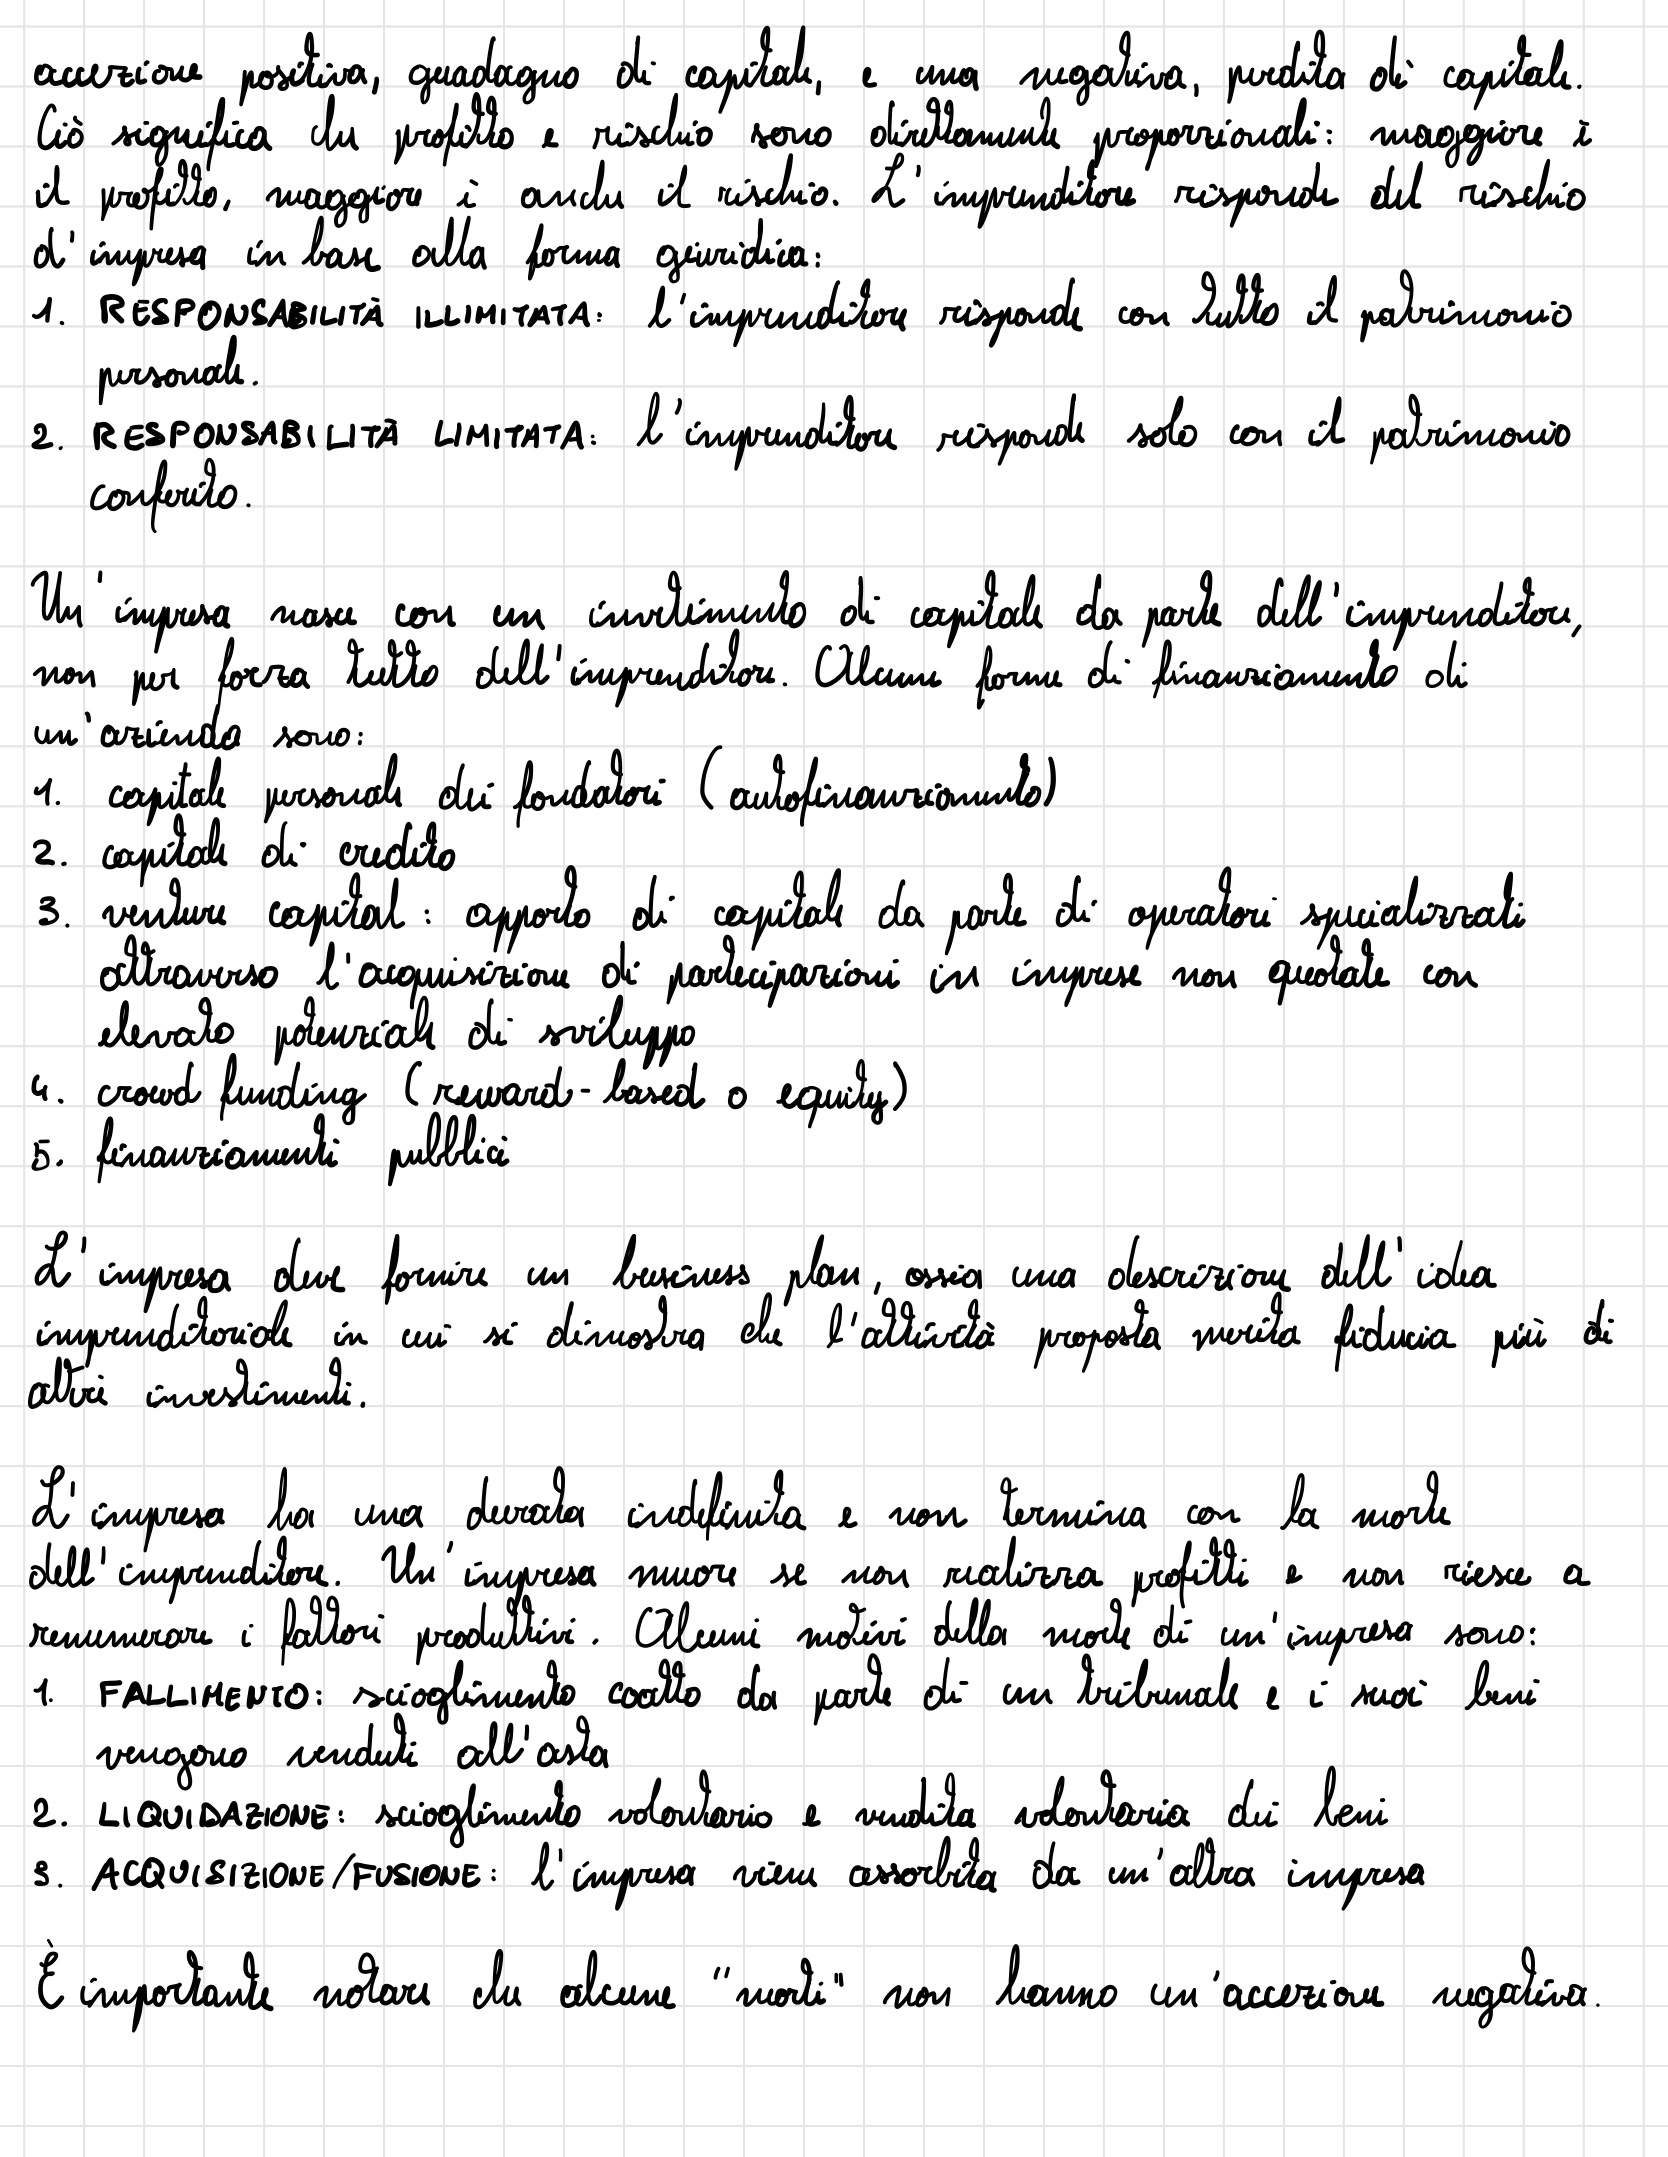 accezione positiva, guadagno di capitale, e una negativa, perdita di capitale.
Ciò significa che profitto e rischio sono direttamente proporzionali: maggiore è
il profitto, maggiore è anche il rischio. L'imprenditore risponde del rischio
d'impresa in base alla forma giuridica:
1. RESPONSABILITÀ ILLIMITATA: l'imprenditore risponde con tutto il patrimonio
personale.
2. RESPONSABILITÀ LIMITATA: l'imprenditore risponde solo con il patrimonio
conferito.
Un'impresa nasce con un invetimento di capitale da parte dell'imprenditore,
non per forza tutto dell'imprenditore. Alcune forme di finanziamento di
un'azienda sono:
1. capitale personale dei fondatori (autofinanziamento)
2. capitale di credito
3. venture capital: apporto di capitale da parte di operatori specializzati
attraverso l'acquisizione di partecipazioni in imprese non quotate con
elevato potenziale di sviluppo
4. crowd funding (reward-based o equity)
5. finanziamenti pubblici
L'impresa deve fornire un business plan, ossia una descrizione dell'idea
imprenditoriale in cui si dimostra che l'attività proposta merita fiducia più di
altri investimenti.
L'impresa ha una durata indefinita e non termina con la morte
dell'imprenditore. Un'impresa muore se non realizza profitti e non riesce a
renumerare i fattori produttivi. Alcuni motivi della morte di un'impresa sono:
1. FALLIMENTO: scioglimento coatto da parte di un tribunale e i suoi beni
vengono venduti all'asta
2. LIQUIDAZIONE: scioglimento volontario e vendita volontaria dei beni
3. ACQUISIZIONE/FUSIONE: l'impresa viene assorbita da un'altra impresa
È importante notare che alcune "morti" non hanno un'accezione negativa.